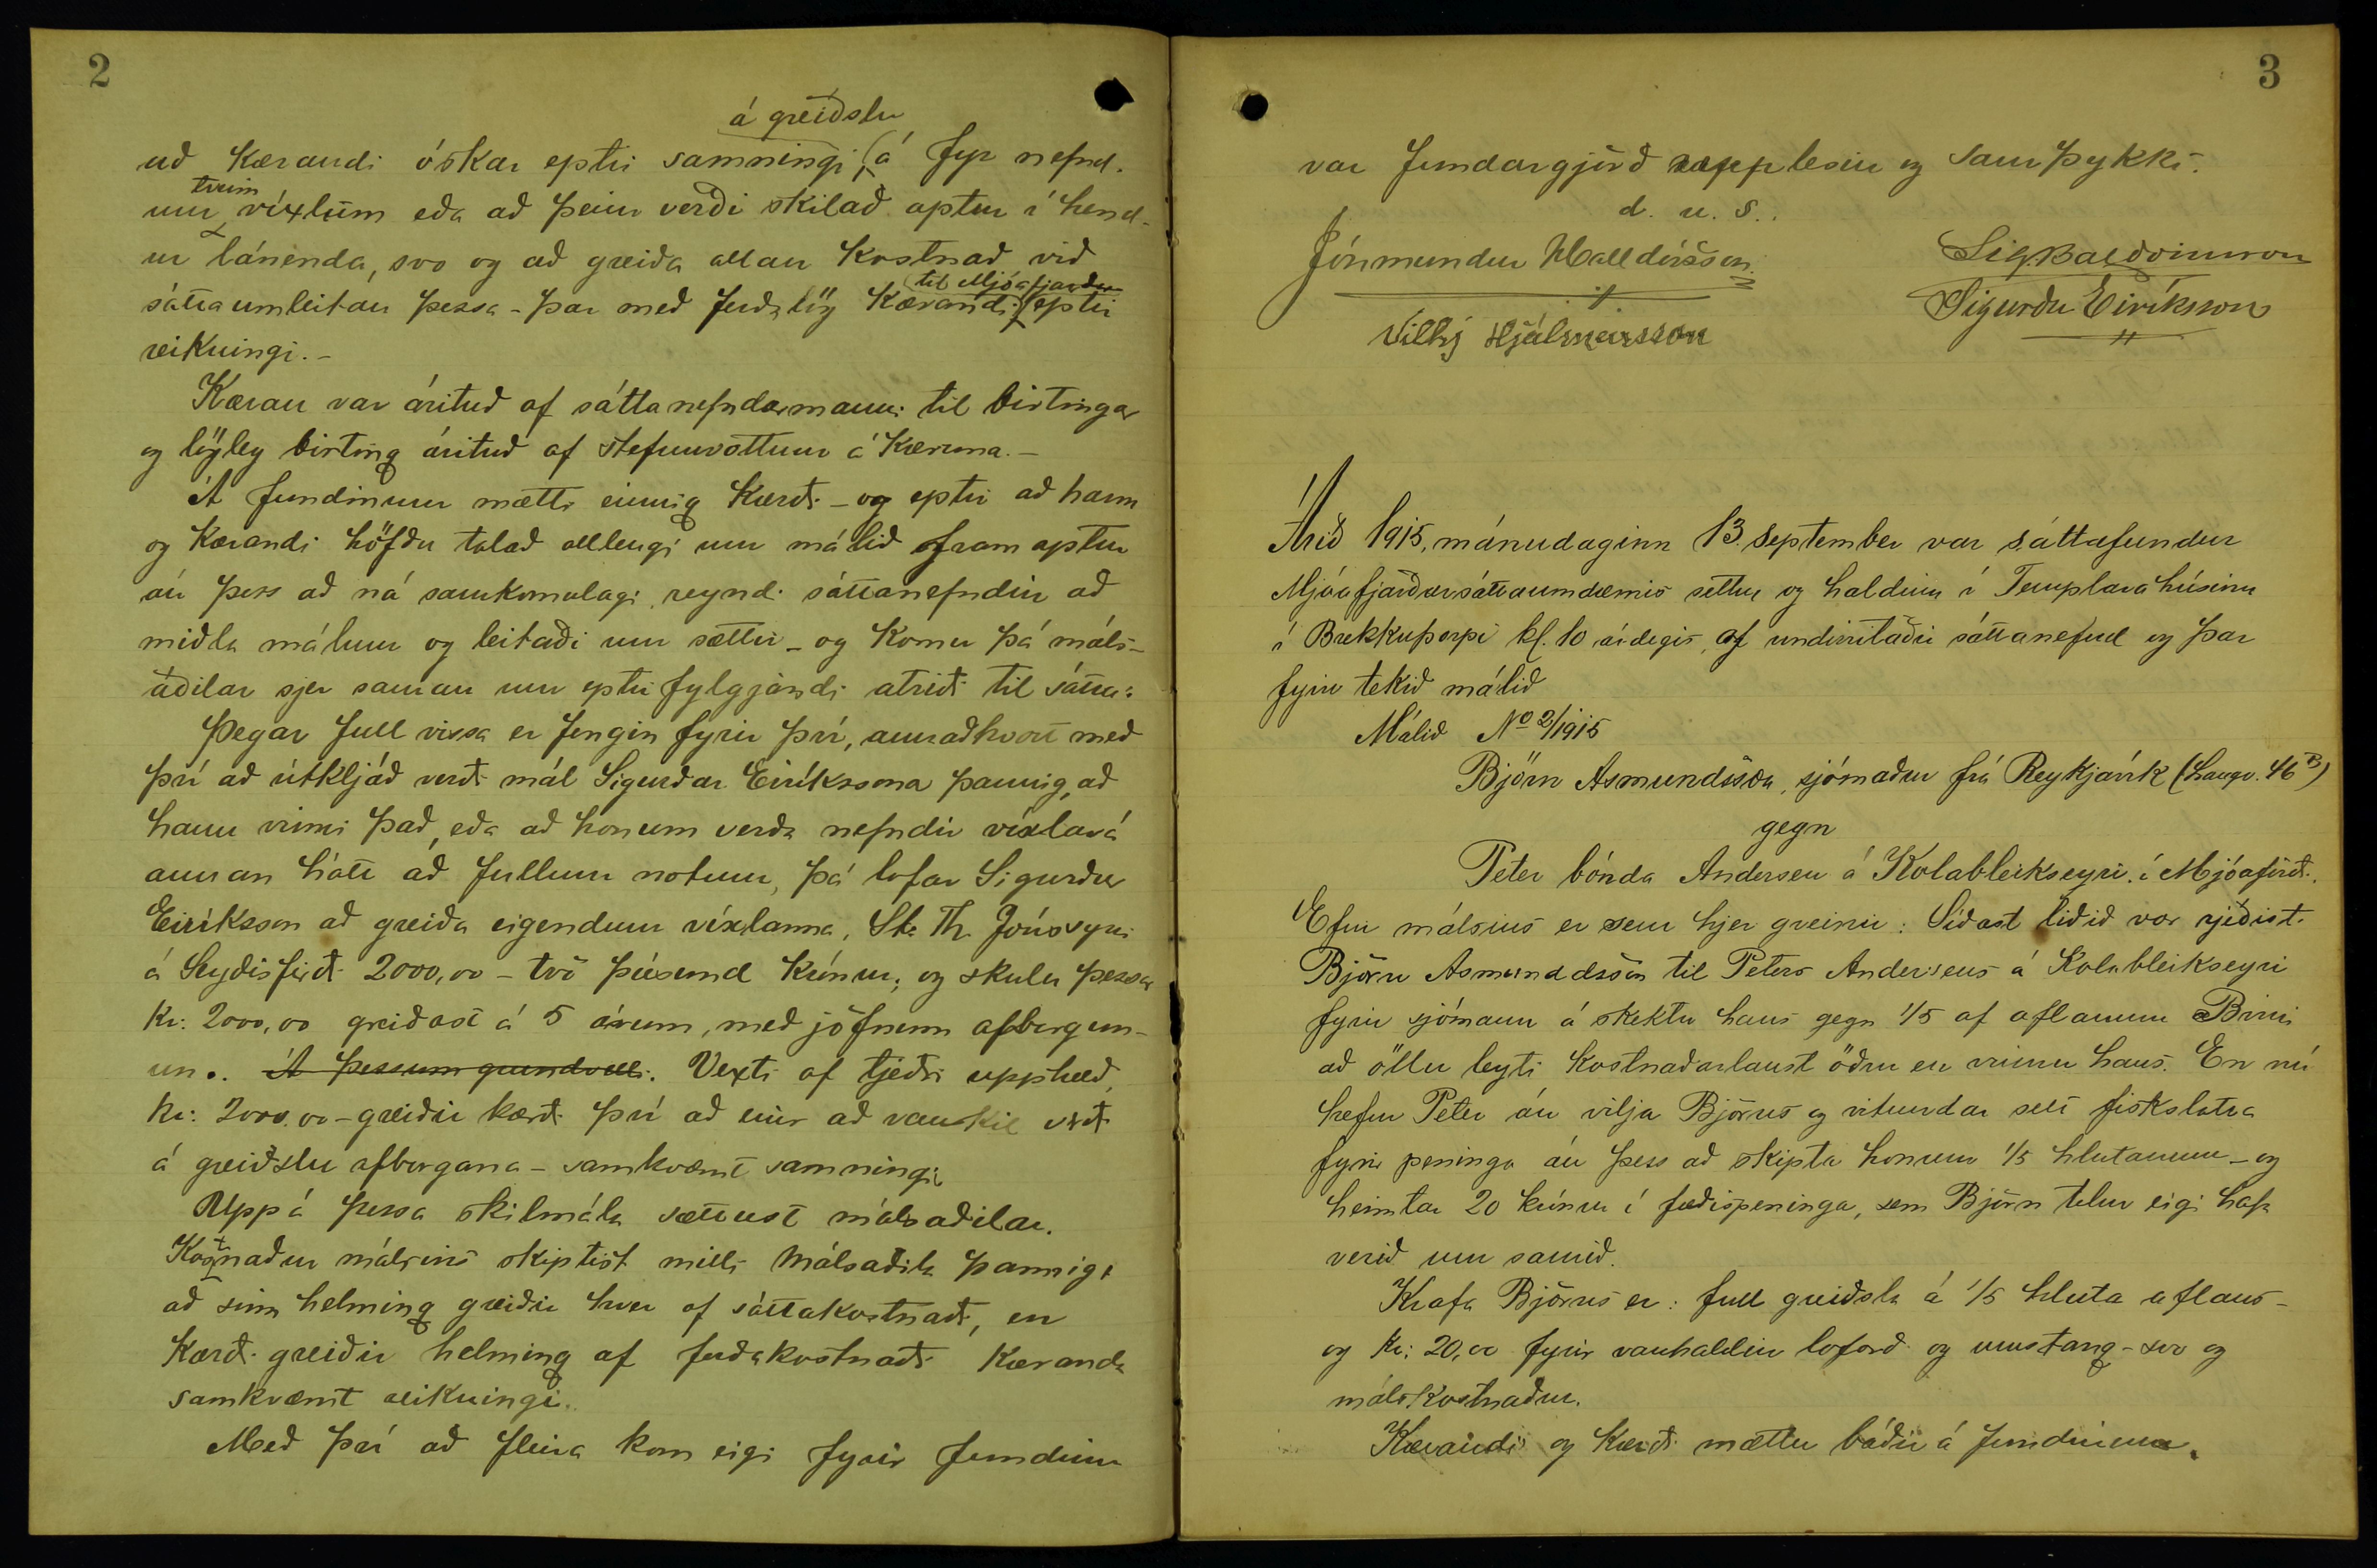 2
á greiðslu
að Kærandi óskar eptir samningi, á fyr nefnd-
tveim
um víxlum eða að þeim verði skilað aptur í hend-
ur lánenda, svo og að greiða allan kostnað við
til Mjóafjarðar
sáttaumleitan þessa - þar með ferðalög Kæranda eptir
reikningi. -
Kæran var árituð af sáttanefndarmanni til birtingar
og lögleg birting árituð af stefnuvottum á Kæruna. -
Á fundinum mætti einnig Kærði - og eptir að hann
og Kærandi höfðu talað alllengi um málið fram aptur
án þess að ná samkomulagi, reyndi sáttanefndin að
miðla málum og leitaði um sættir - og komu þá máls-
aðilar sjer saman um eptirfylgjandi atriði til sátta:
Þegar full vissa er fengin fyrir því, annaðhvort með
því að útkljáð verði mál Sigurðar Eiríkssonar þannig, að
hann vinni það, eða að honum verða nefndir víxlar á
annan hátt að fullum notum, þá lofar Sigurður
Eiríksson að greiða eigendum víxlanna, St. Th. Jónssyni
á Seyðisfirði 2000,00 - tvö þúsund krónur; og skulu þessar
Kr: 2000,00 greiðast á 5 árum, með jöfnum afborgun-
um. Á þessum grundvelli. Vexti af tjeðri upphæð,
Kr: 2000.00 - greiðir kærði því að eins að vanskil verði
á greiðslu afborgana - samkvæmt samningi.
Uppá þessa skilmála sættust málsaðilar.
Kostnaður málsins skiptist milli málsaðila þannig:
að sinn helming greiðir hver af sáttakostnaði, en
Kærði greiðir helming af ferðakostnaði Kæranda
samkvæmt reikningi.
Með því að fleira kom eigi fyrir fundinn
3
var fundargjörð upplesin og samþykkt.
d. u. s.
Jónmundur Halldórsson
Sig. Baldvinsson
Sigurður Eiríksson
Vilhj Hjálmarsson
Árið 1915, mánudaginn 13. september var sáttafundur
Mjóafjarðarsáttaumdæmis settur og haldinn í Templarahúsinu
í Brekkuþorpi kl. 10 árdegis, af undirritaðri sáttanefnd og þar
fyrir tekið málið
Málið No 2/1915
Björn Asmundsson, sjómaður frá Reykjavík (Laugv. 46B)
gegn
Peter bónda Andersen á Kolableikseyri í Mjóafirði.
Efni málsins er sem hjer greinir: Síðast liðið vor rjeðist
Björn Asmundsson til Peters Andersens á Kolableikseyri
fyrir sjómann á skektu hans gegn 1/5 af aflanum Birni
að öllu leyti kostnaðarlaust öðru en vinnu hans. En nú
hefur Peter án vilja Björns og vitundar selt fisk slatta
fyrir peninga án þess að skipta honum 1/5 hlutanum - og
heimtar 20 krónur í fæðispeninga, sem Björn telur eigi hafa
verið um samið.
Krafa Björns er: full greiðsla á 1/5 hluta aflans -
og Kr: 20,00 fyrir vanhaldin loforð og umstang - svo og
málskostnaður.
Kærandi og Kærði mættu báðir á fundinum.